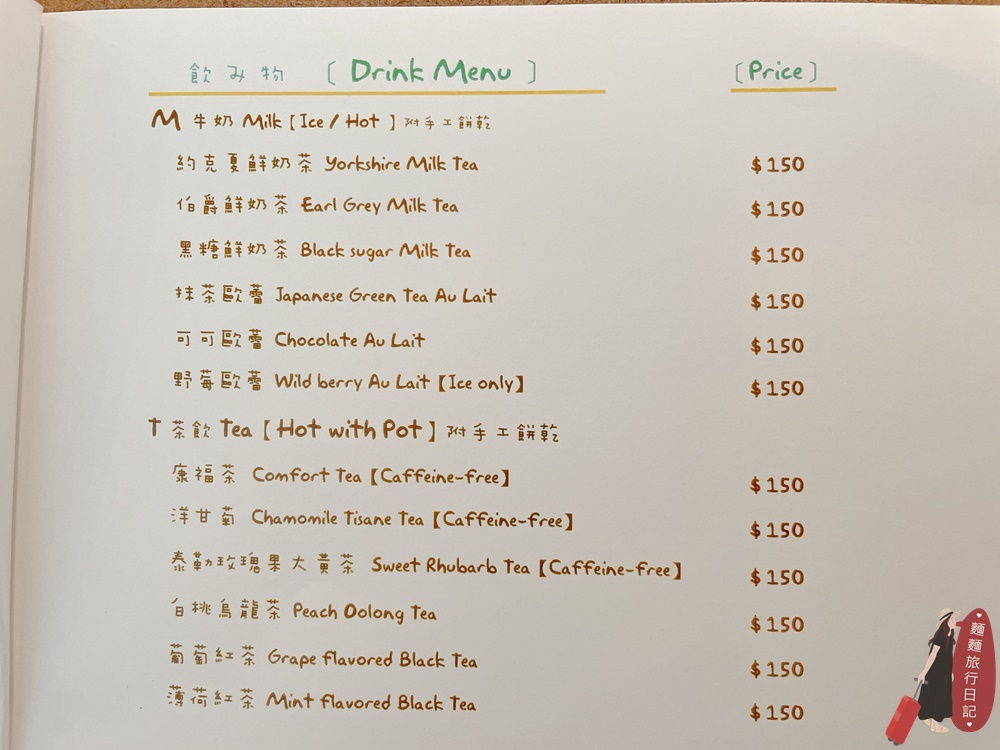 飲み物 〔 Drink Menu 〕 〔Price〕
M 牛奶 Milk【Ice / Hot 】附手工餅乾
約克夏鮮奶茶 Yorkshire Milk Tea $150
伯爵鮮奶茶 Earl Grey Milk Tea $150
黑糖鮮奶茶 Black sugar Milk Tea $150
抹茶歐蕾 Japanese Green Tea Au Lait $150
可可歐蕾 Chocolate Au Lait $150
野莓歐蕾 Wild berry Au Lait【Ice only】 $150
T 茶飲 Tea【Hot with Pot】附手工餅乾
康福茶 Comfort Tea【Caffeine-free】 $150
洋甘菊 Chamomile Tisane Tea【Caffeine-free】 $150
泰勒玫瑰果大黃茶 Sweet Rhubarb Tea【Caffeine-free】 $150
白桃烏龍茶 Peach Oolong Tea $150
葡萄紅茶 Grape flavored Black Tea $150
薄荷紅茶 Mint flavored Black Tea $150
麵麵旅行日記